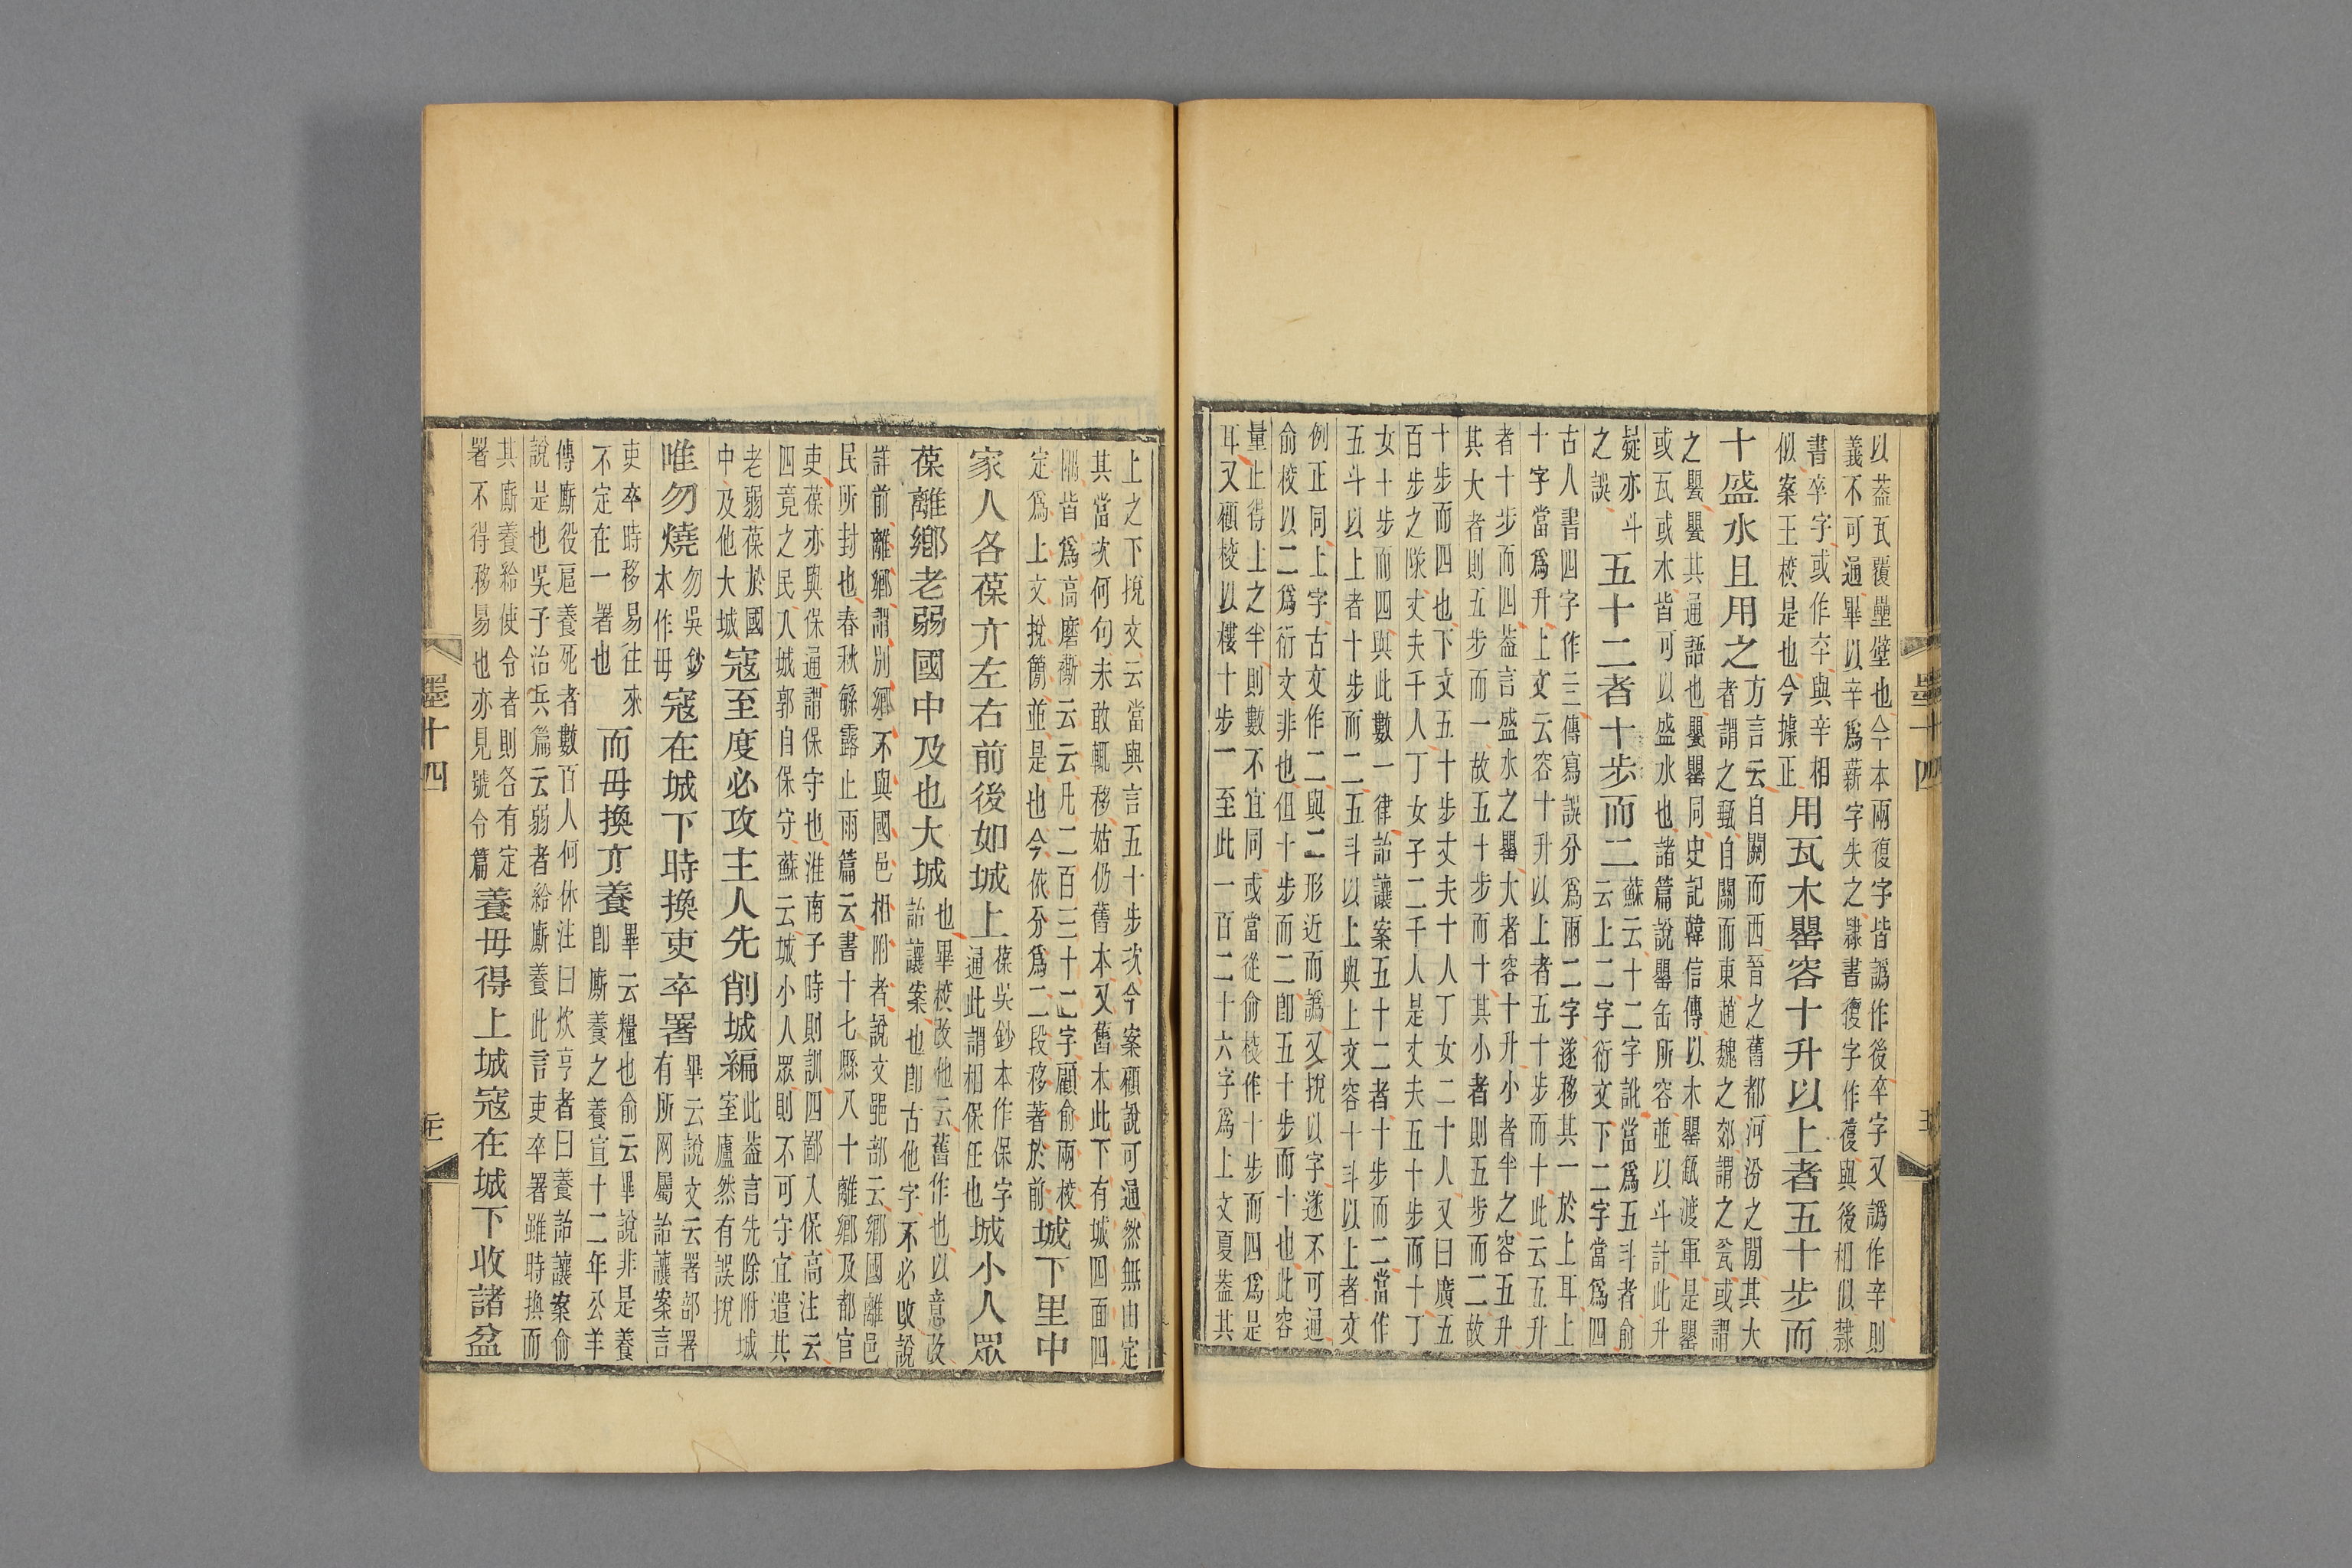 以葢瓦覆壘壁也今本兩復字皆譌作後卒字又譌作辛則
義不可通畢以辛爲薪字失之隸書復字作𢕛與後相似隸
書卒字或作卆與辛相
似案王校是也今據正
用瓦木罌容十升以上者五十步而
十盛水且用之
方言云自關而西晉之舊都河汾之閒其大
者謂之甄自關而東趙魏之郊謂之瓮或謂
之罌甖其通語也甖罌同史記韓信傳以木罌缻渡軍是罌
或瓦或木皆可以盛水也諸篇說罌缶所容並以斗計此升
疑亦斗
之誤
五十二者十步而二
蘇云十二字訛當爲五斗者俞
云上二字衍文下二字當爲四
古人書四字作亖傳寫誤分爲兩二字遂移其一於上耳上
十字當爲升上文云容十升以上者五十步而十此云五升
者十步而四葢言盛水之罌大者容十升小者半之容五升
其大者則五步而一故五十步而十其小者則五步而二故
十步而四也下文五十步丈夫十人丁女二十人又曰廣五
百步之隊丈夫千人丁女子二千人是丈夫五十步而十丁
女十步而四與此數一律詒讓案五十二者十步而二當作
五斗以上者十步而二五斗以上與上文容十斗以上者文
例正同上字古文作二與二形近而譌又挩以字遂不可通
俞校以二爲衍文非也但十步而二卽五十步而十也此容
量止得上之半則數不宜同或當從俞校作十步而四爲是
耳又顧校以樓十步一至此一百二十六字爲上文夏葢其
墨十四
上之下挩文云當與言五十步次今案顧說可通然無由定
其當次何句未敢輒移姑仍舊本又舊本此下有城四面四
隅皆爲高磨㯕云云凡二百三十二字顧俞兩校
定爲上文挩簡並是也今依分爲二段移著於前
城下里中
家人各葆亓左右前後如城上
葆吳鈔本作保字
通此謂相保任也
城小人眾
葆離鄉老弱國中及也大城
也畢校改他云舊作也以意改
詒讓案也卽古他字不必改說
詳前離鄉謂別鄉不與國邑相附者說文𨛜部云鄉國離邑
民所封也春秋繁露止雨篇云書十七縣八十離鄉及都官
吏葆亦與保通謂保守也淮南子時則訓四鄙入保高注云
四竟之民入城郭自保守蘇云城小人眾則不可守宜遣其
老弱葆於國
中及他大城
寇至度必攻主人先削城編
此葢言先除附城
室廬然有誤挩
唯勿燒
勿吳鈔
本作毋
寇在城下時換吏卒署
畢云說文云署部署
有所网屬詒讓案言
吏卒時移易往來
不定在一署也
而毋換亓養
畢云糧也俞云畢說非是養
卽廝養之養宣十二年公羊
傳廝役扈養死者數百人何休注曰炊亨者曰養詒讓案俞
說是也吳子治兵篇云弱者給廝養此言吏卒署雖時換而
其廝養給使令者則各有定
署不得移易也亦見號令篇
養毋得上城寇在城下收諸盆
墨十四